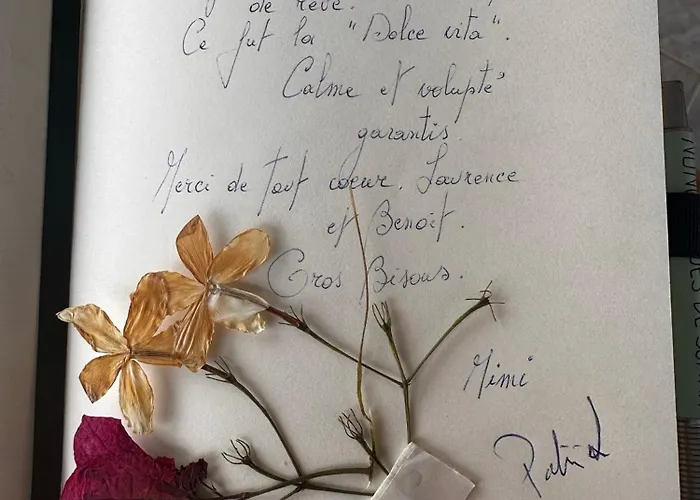 de rêve.
Ce fut la "Dolce vita".
Calme et volupté
garantis.
Merci de tout coeur, Laurence
et Benoît.
Gros Bisous.
Mimi
Patrick